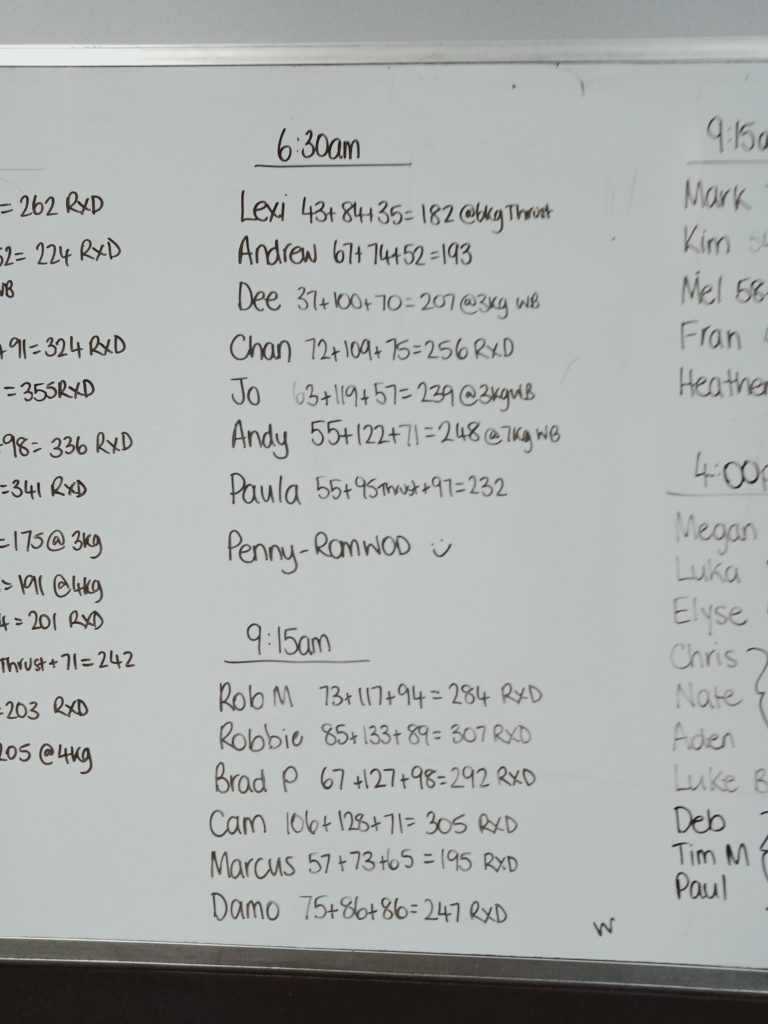 = 262 RXD
52= 224 RXD
WB
+91=324 RXD
=355RXD
98= 336 RXD
=341 RXD
=175@ 3kg
= 191 @4kg
4=201 RXD
Thrust+71=242
=203 RXD
205 @4kg
6:30am
Lexi 43+84+35= 182 @6kg Thrust
Andrew 67+74+52=193
Dee 37+100+70=207@3kg WB
Chan 72+109+75=256 RXD
Jo 63+119+57= 239 @3kgWB
Andy 55+122+71=248@7kg WB
Paula 55+95Thrust+97=232
Penny-ROMWOD
9:15am
Rob M 73+117+94= 284 RXD
Robbie 85+133+89= 307 RXD
Brad P 67+127+98=292 RXD
Cam 106+128+71= 305 RXD
Marcus 57+73+65 =195 RXD
Damo 75+86+86=247 RXD
W
9:15a
Mark
Kim
Mel 58
Fran
Heather
4:00p
Megan
Luka
Elyse
Chris
Nate
Aden
Luke B
Deb
Tim M
Paul